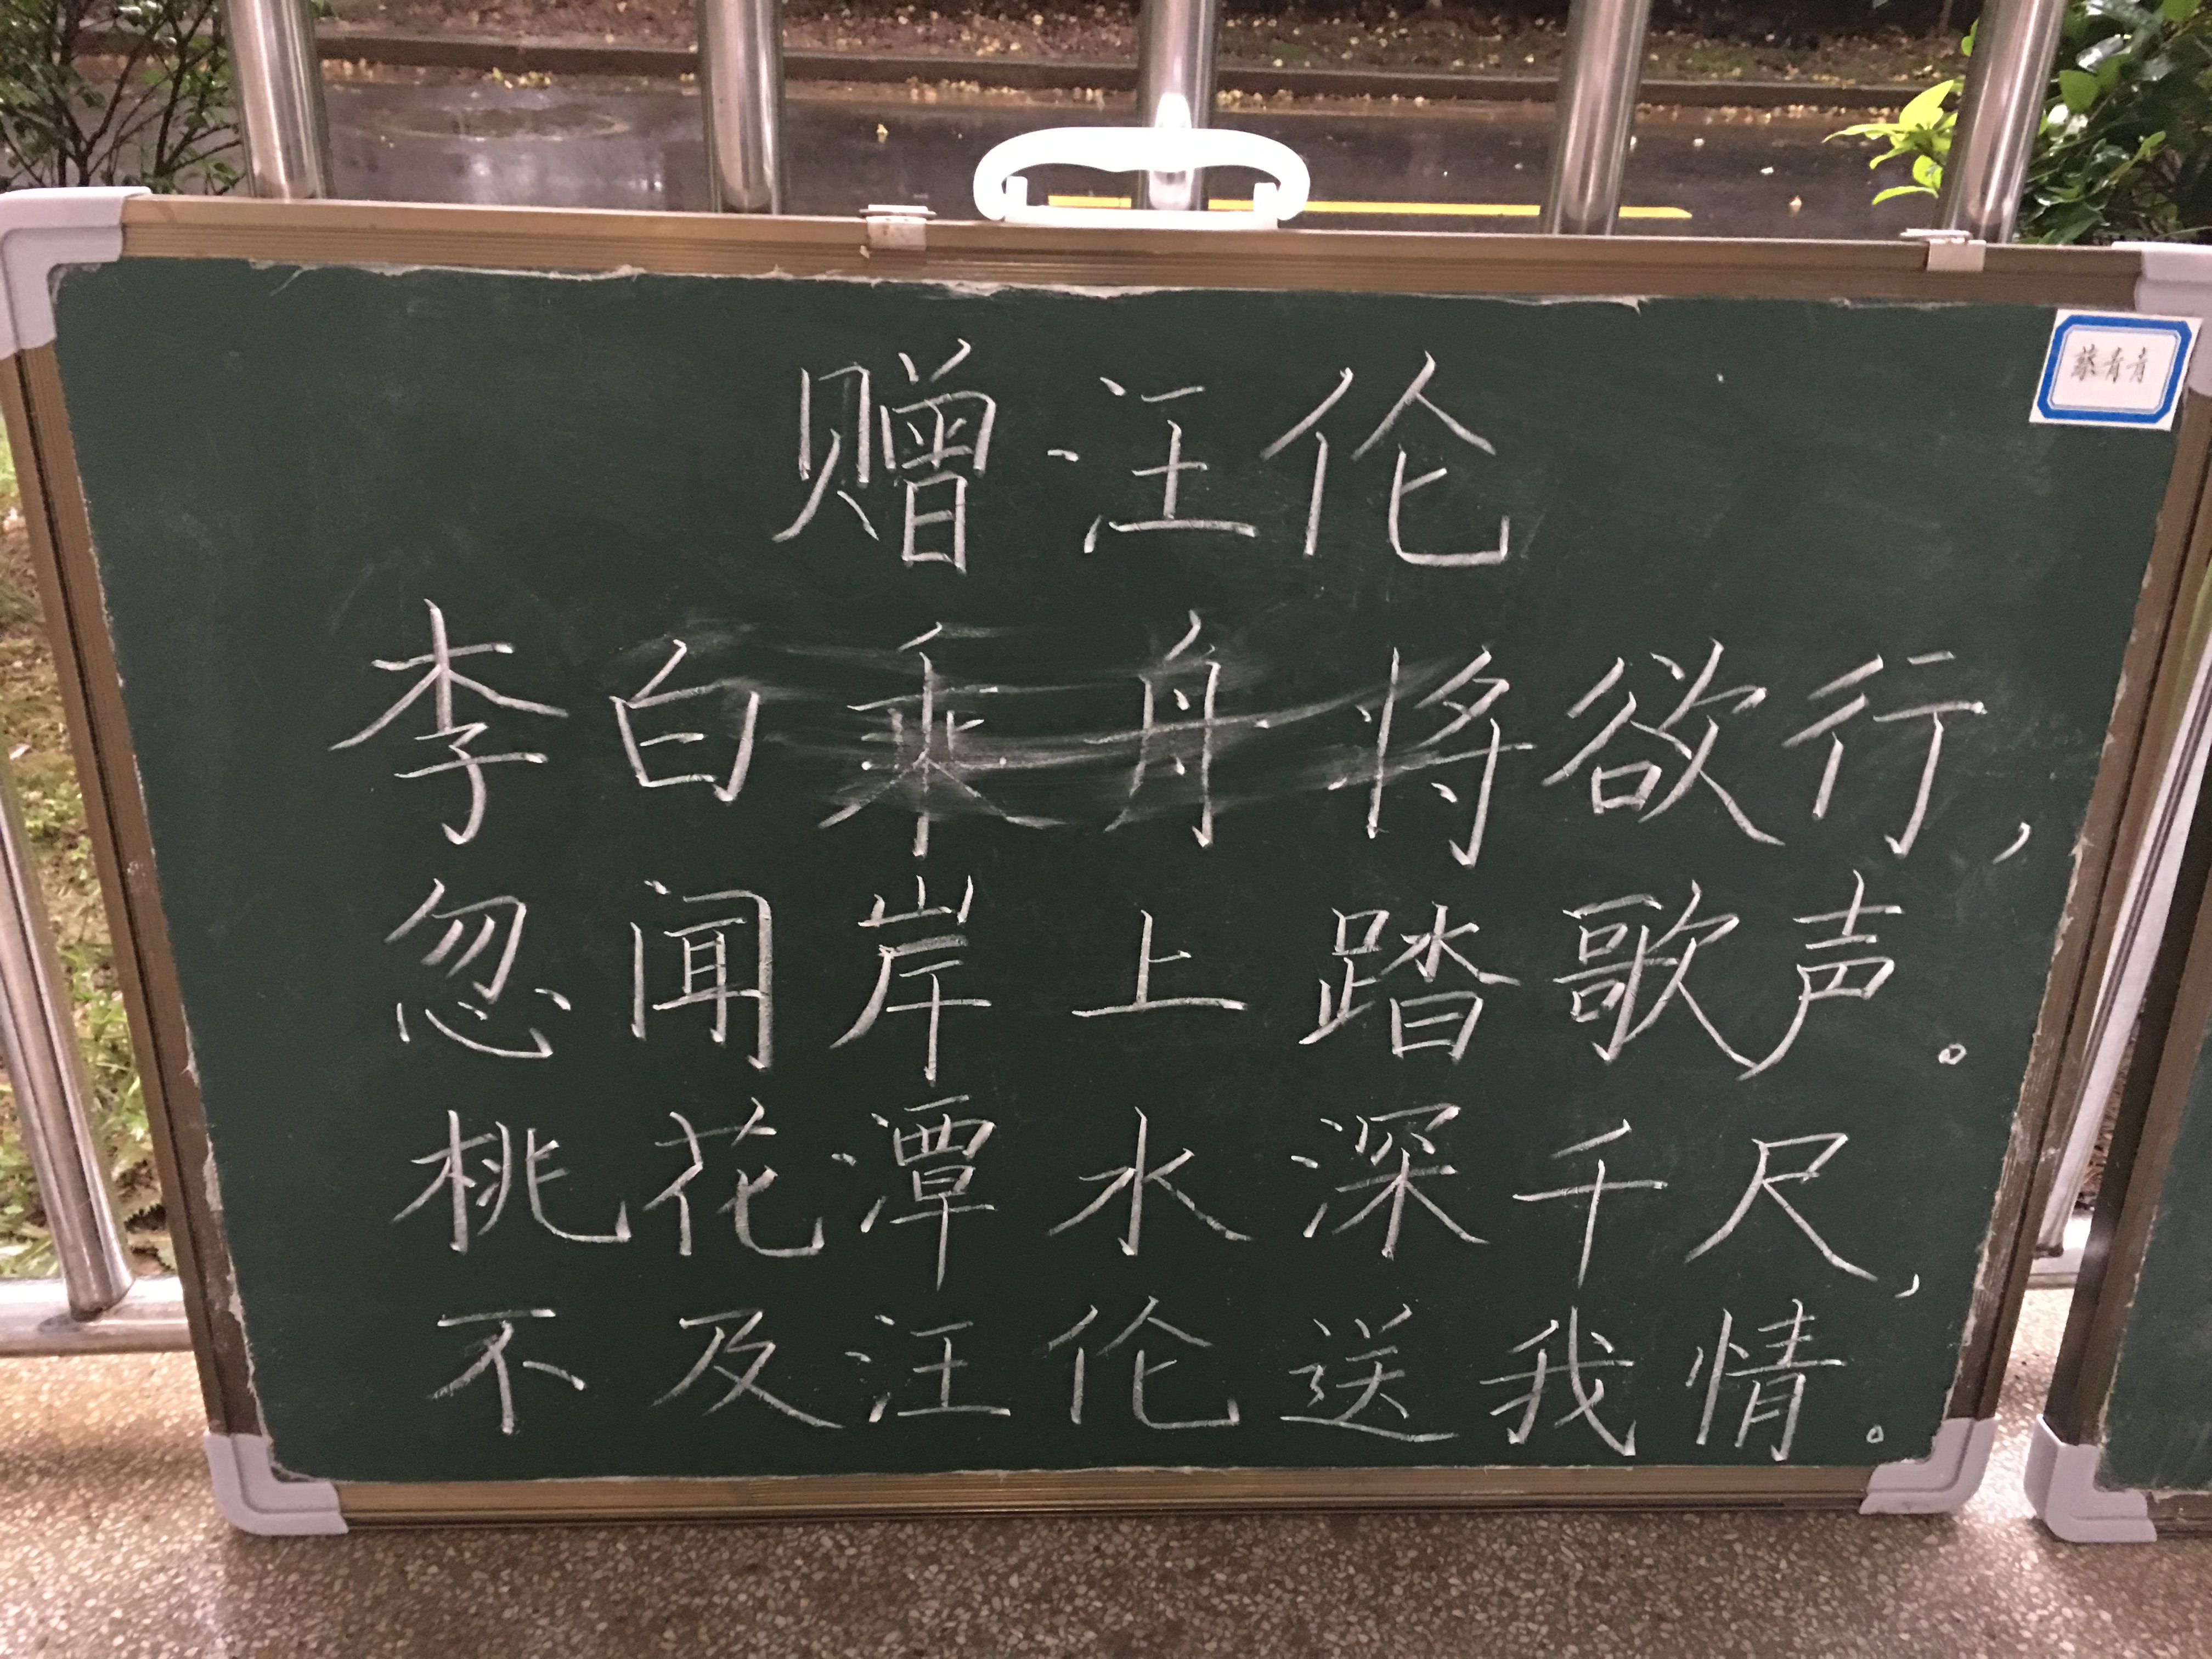 赠汪伦
李白乘舟将欲行,
忽闻岸上踏歌声。
桃花潭水深千尺,
不及汪伦送我情。